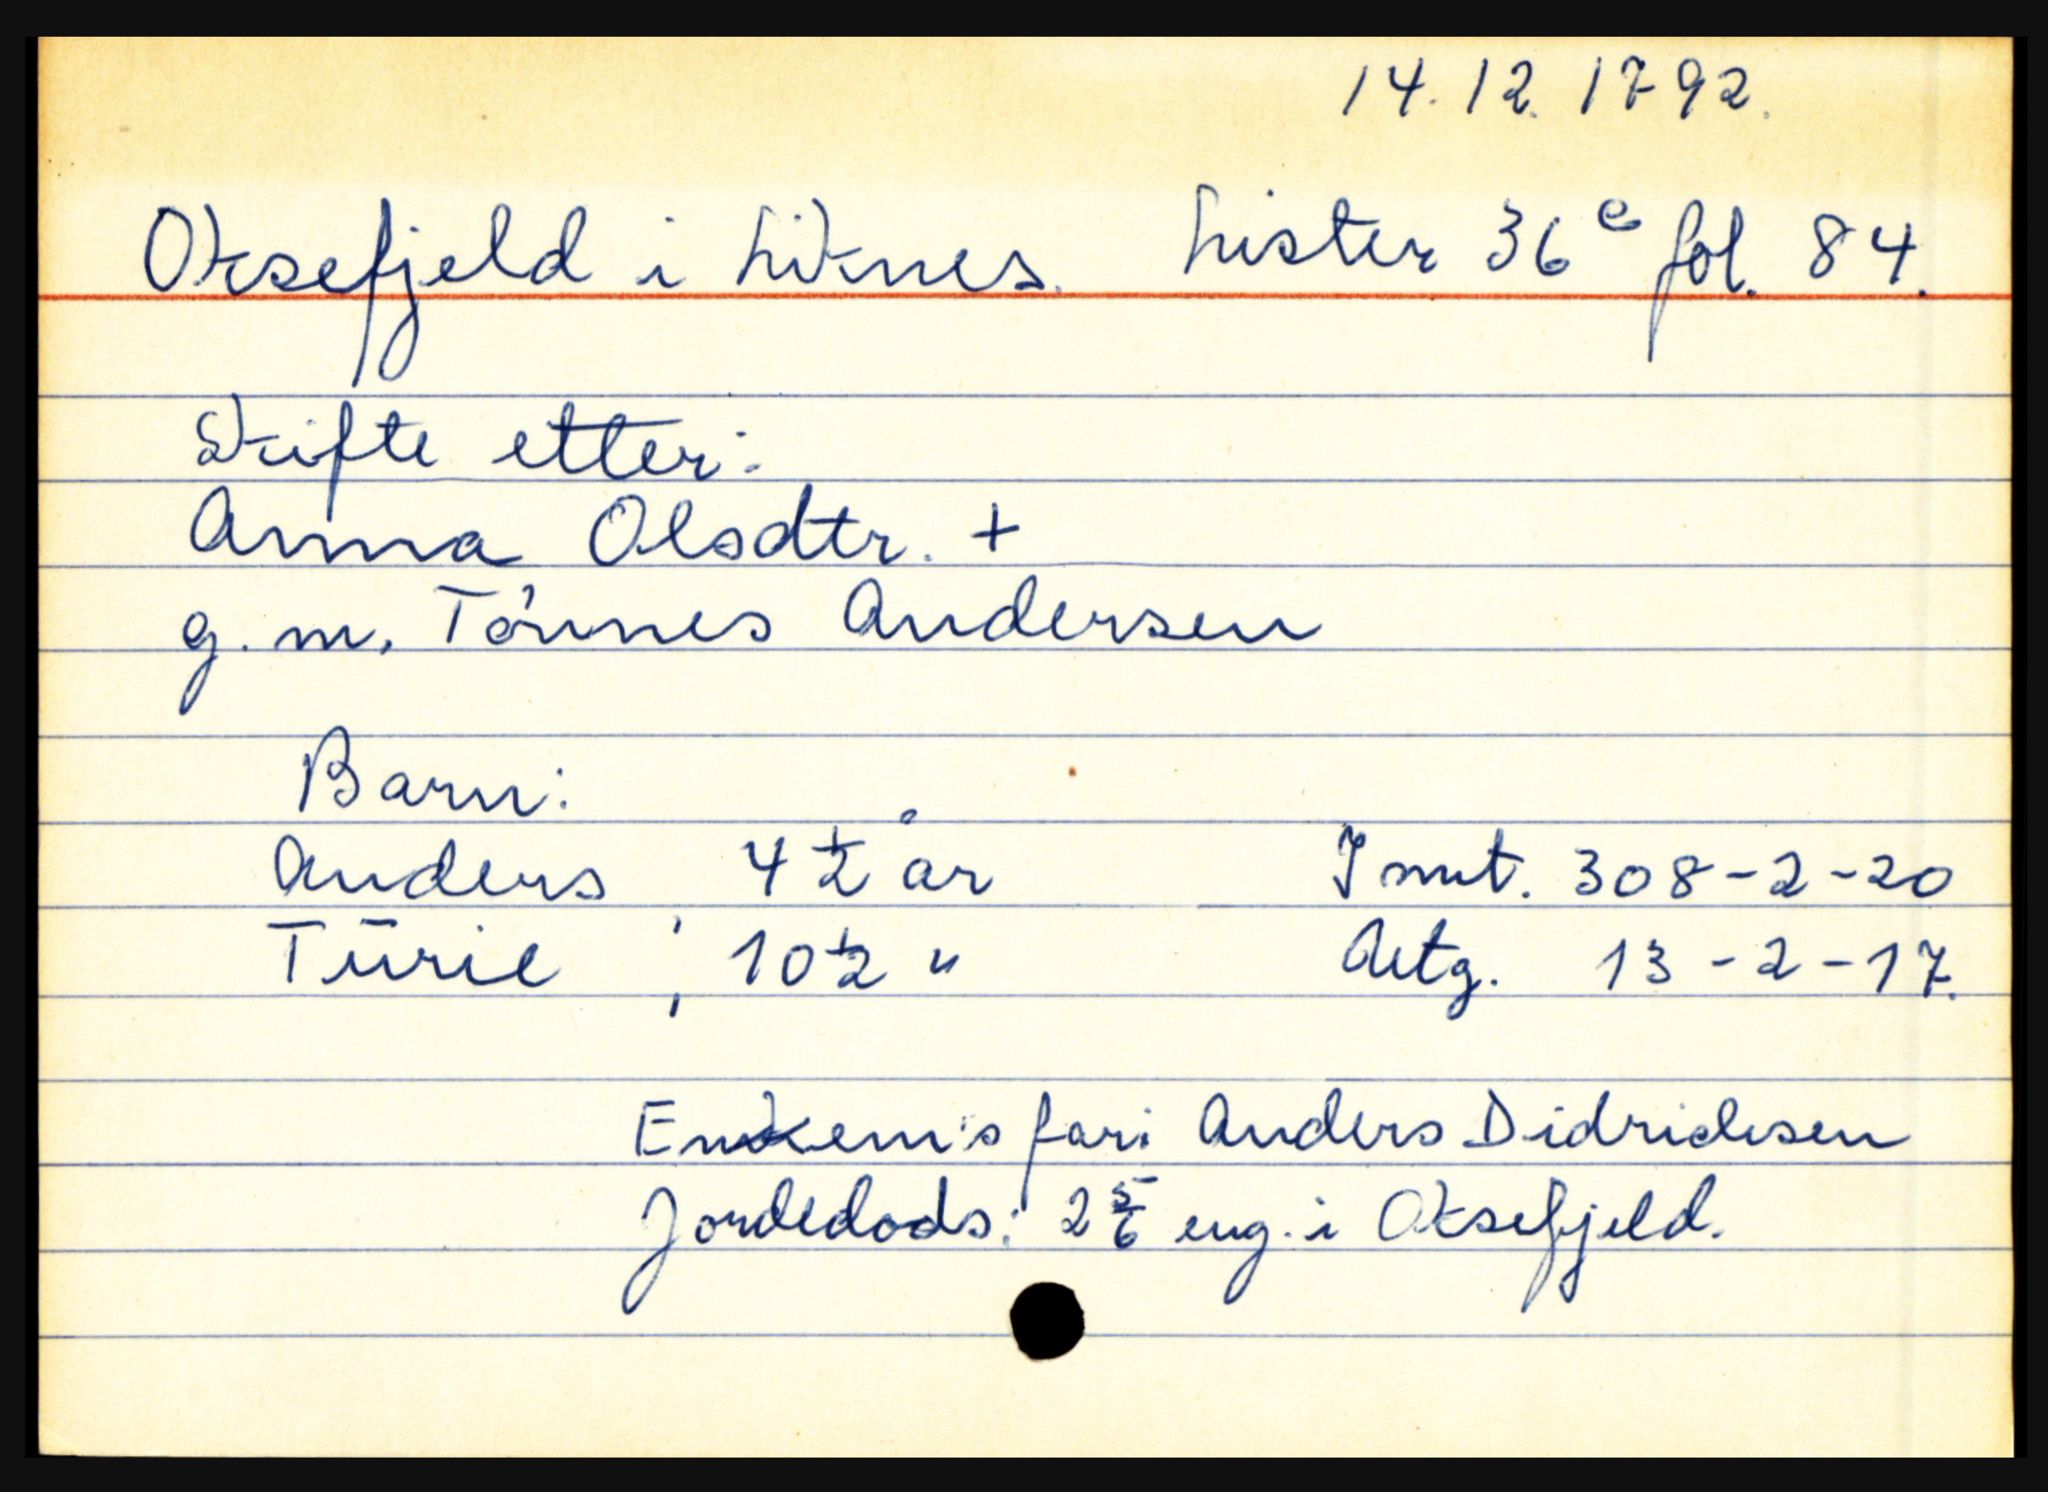 14.12.1792.
Oksefjeld i Liknes. Lister 36e fol. 84.
Skifte etter:
Anna Olsdtr. +
g. m. Tønnes Andersen
Barn:
Anders 4 1/2 år Innt. 308-2-20
Tūrie ; 10 1/2 " Utg. 13-2-17.
Enkem's far: Anders Didrichsen
Jordedods: 2 5/6 eng. i Oksefjeld.